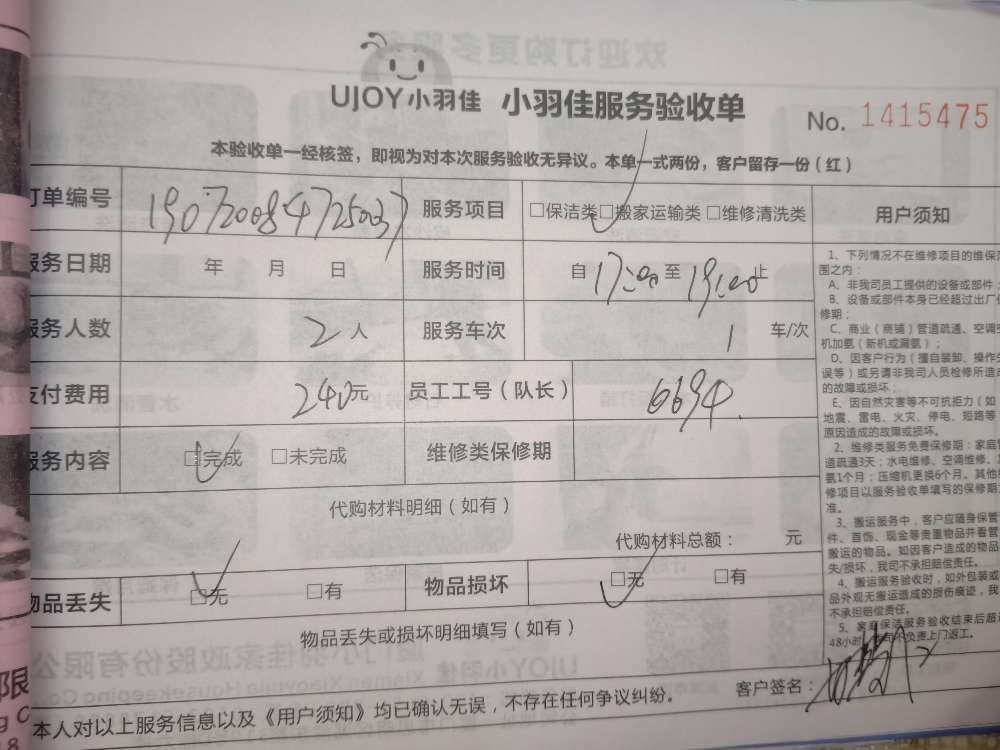 UJOY小羽佳 小羽佳服务验收单 No. 1415475
本验收单一经核签，即视为对本次服务验收无异议。本单一式两份，客户留存一份（红）
订单编号 服务项目 □保洁类 □搬家运输类 □维修清洗类 用户须知
服务日期 年 月 日 服务时间 自 17:00 至 19:00 止
服务人数 2 人 服务车次 1 车/次
支付费用 240元 员工工号（队长） 6694
服务内容 □完成 □未完成 维修类保修期
代购材料明细（如有）
代购材料总额： 元
物品丢失 □无 □有 物品损坏 □无 □有
物品丢失或损坏明细填写（如有）
客户签名：
本人对以上服务信息以及《用户须知》均已确认无误，不存在任何争议纠纷。
1、下列情况不在维修项目的维保范
围之内：
A、非我司员工提供的设备或部件；
B、设备或部件本身已经超过出厂保
修期；
C、商业（商铺）管道疏通、空调空
机加氨（新机或漏氨）；
D、因客户行为（擅自装卸、操作失
误等）或另请非我司人员检修所造成
的故障或损坏；
E、因自然灾害等不可抗拒力（如
地震、雷电、火灾、停电、短路等
原因造成的故障或损坏。
2、维修类服务免费保修期：家庭管
道疏通3天；水电维修、空调维修、
氨1个月；压缩机更换6个月。其他
修项目以服务验收单填写的保修期
准。
3、搬运服务中，客户应随身保管
件、首饰、现金等贵重物品并看管
搬运的物品。如因客户造成的物品
失/损坏，我司不承担赔偿责任。
4、搬运服务验收时，如外包装或
品外观无搬运造成的损伤痕迹，我
不承担赔偿责任。
5、家庭保洁服务验收结束后超过
48小时 不负责上门返工。
限